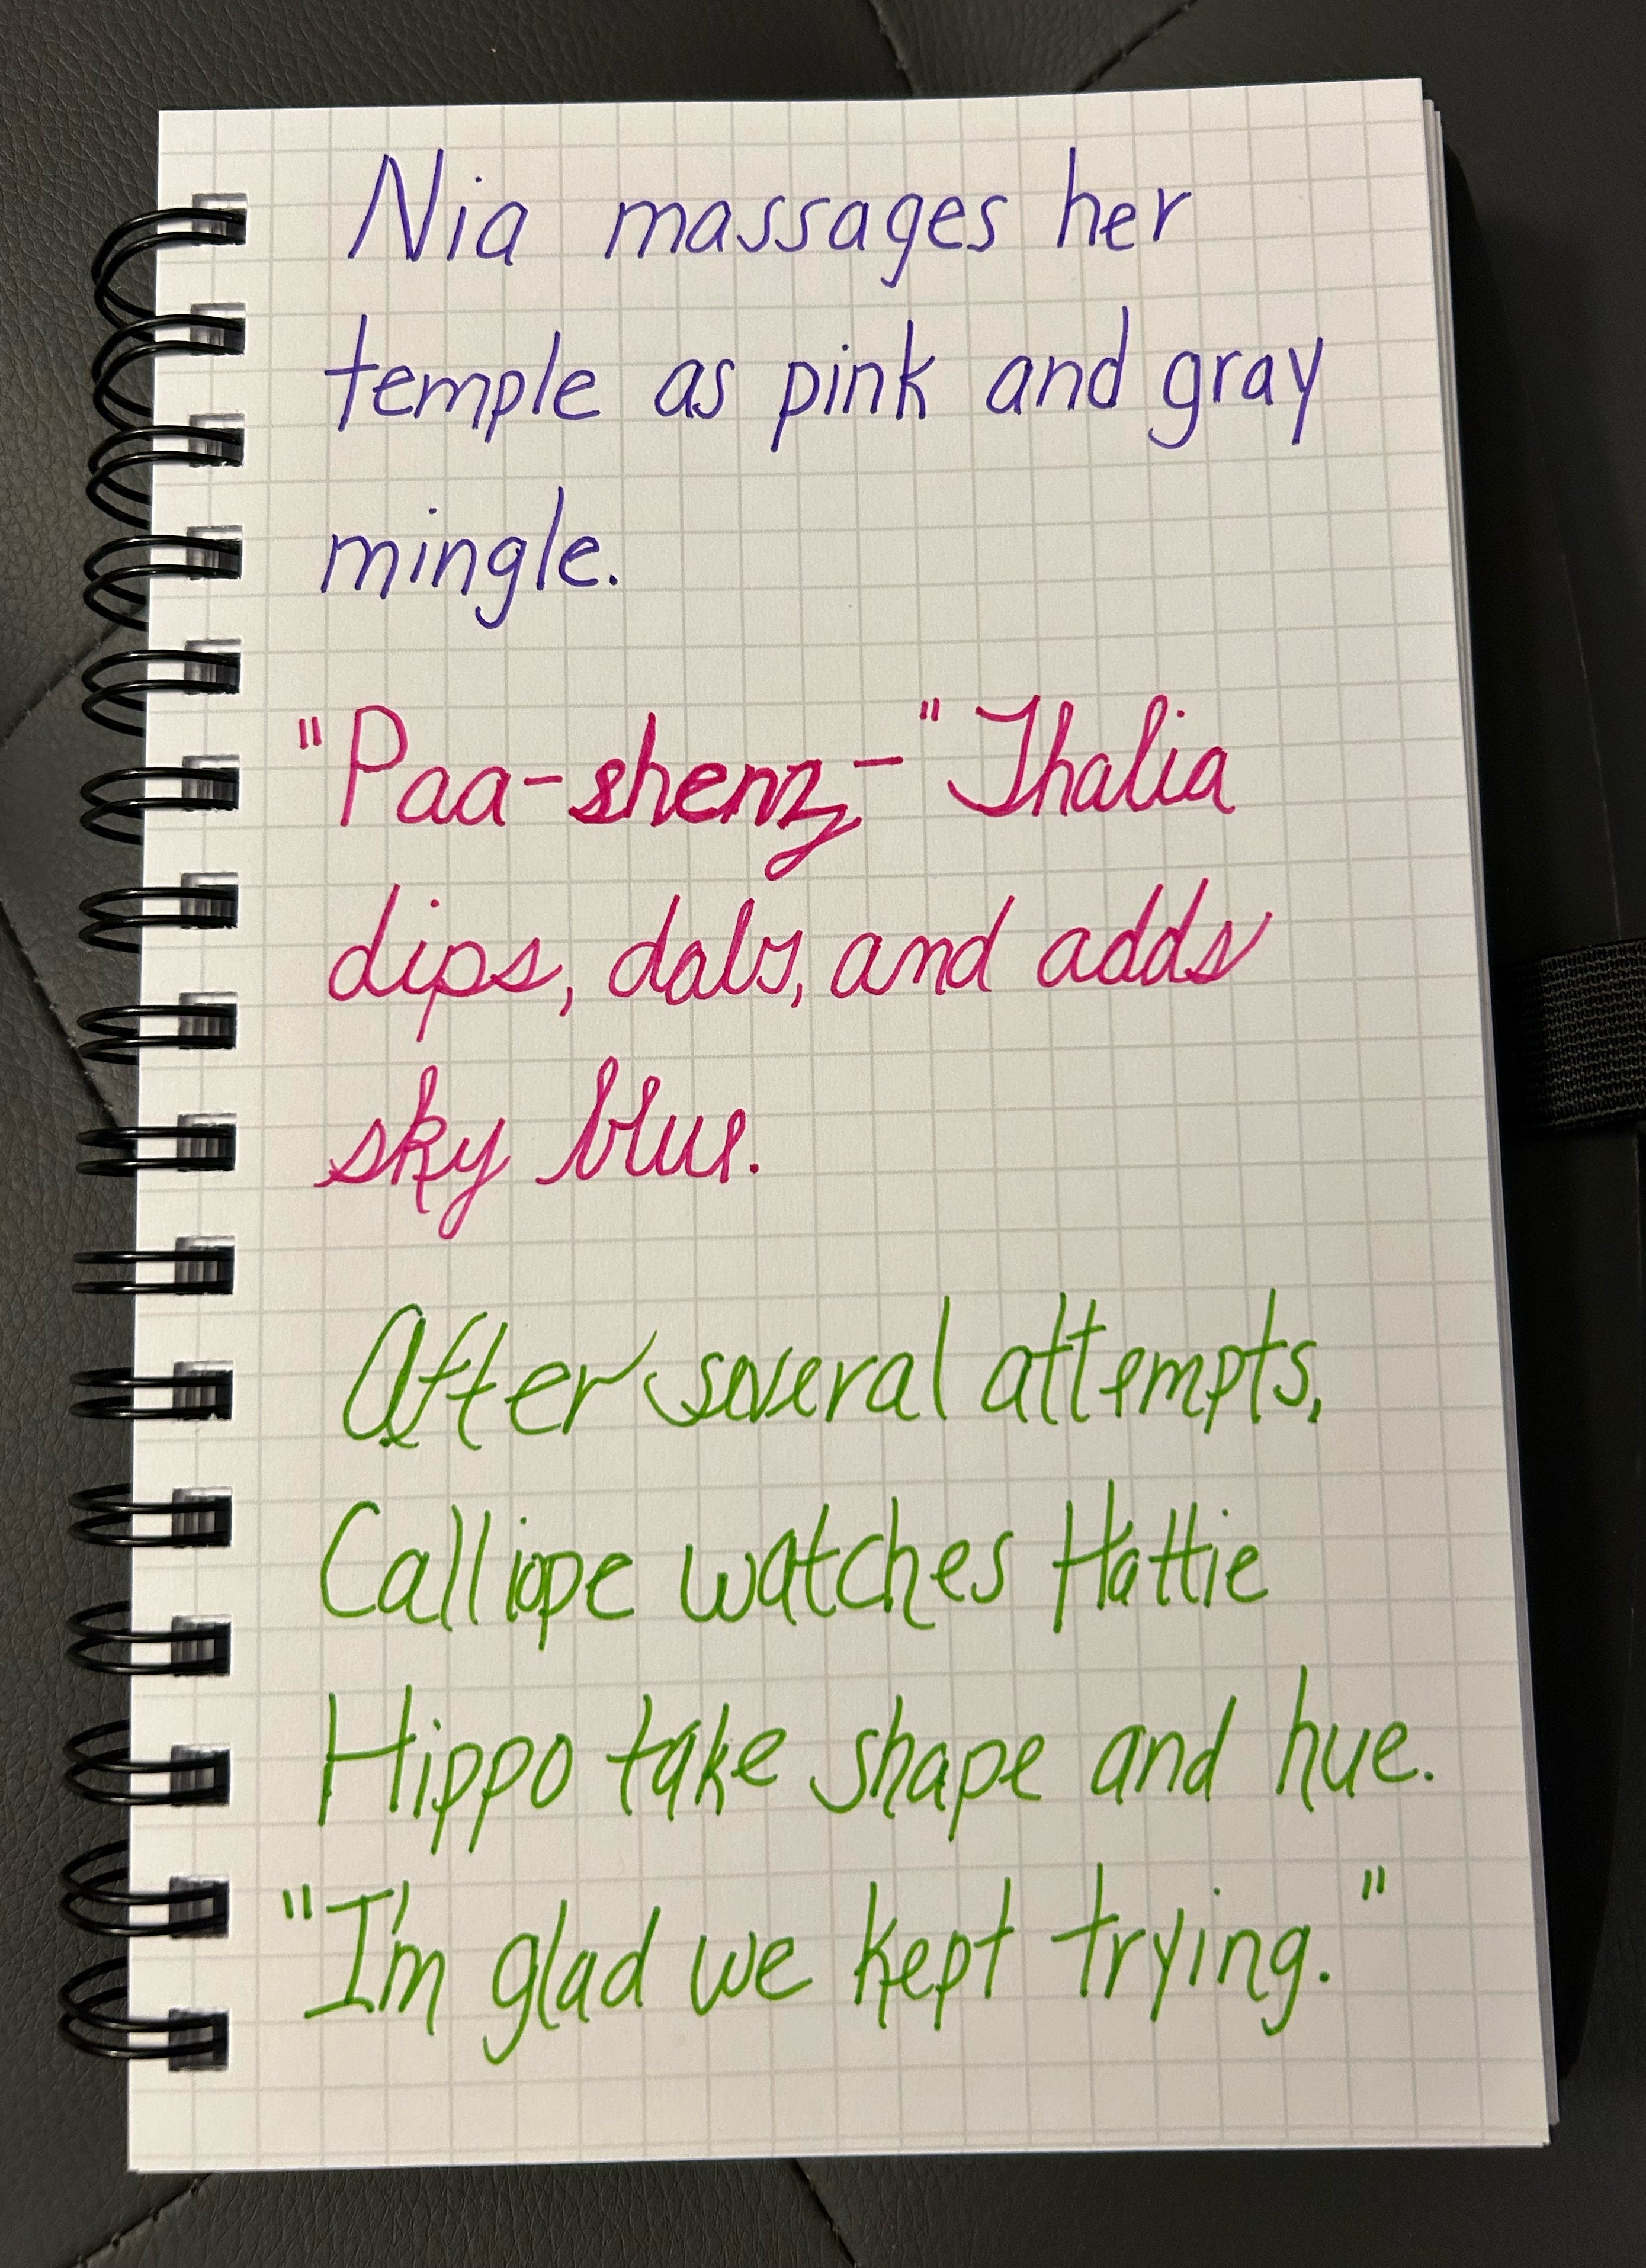 Nia massages her
temple as pink and gray
mingle.
"Paa-shenz-" Thalia
dips, dabs, and adds
sky blue.
After several attempts,
Calliope watches Hattie
Hippo take shape and hue.
"I'm glad we kept trying."